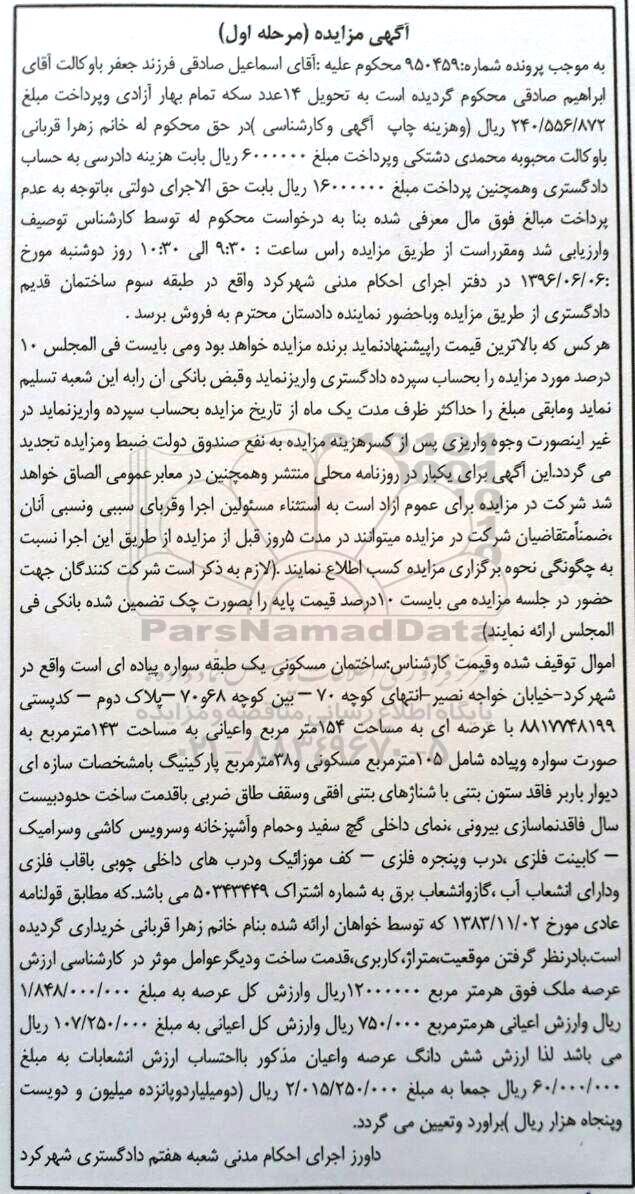 آگهی مزایده (مرحله اول)
به موجب پرونده شماره:۹۵۰۴۵۹ محکوم علیه :آقای اسماعیل صادقی فرزند جعفر باوکالت آقای
ابراهیم صادقی محکوم گردیده است به تحویل ۱۴عدد سکه تمام بهار آزادی وپرداخت مبلغ
۲۴۰/۵۵۶/۸۷۲ ریال (وهزینه چاپ آگهی وکارشناسی )در حق محکوم له خانم زهرا قربانی
باوکالت محبوبه محمدی دشتکی وپرداخت مبلغ ۶۰۰۰۰۰۰ ریال بابت هزینه دادرسی به حساب
دادگستری وهمچنین پرداخت مبلغ ۱۶۰۰۰۰۰۰ ریال بابت حق الاجرای دولتی ،باتوجه به عدم
پرداخت مبالغ فوق مال معرفی شده بنا به درخواست محکوم له توسط کارشناس توصیف
وارزیابی شد ومقرراست از طریق مزایده راس ساعت : ۹:۳۰ الی ۱۰:۳۰ روز دوشنبه مورخ
:۱۳۹۶/۰۶/۰۶ در دفتر اجرای احکام مدنی شهرکرد واقع در طبقه سوم ساختمان قدیم
دادگستری از طریق مزایده وباحضور نماینده دادستان محترم به فروش برسد .
هرکس که بالاترین قیمت راپیشنهادنماید برنده مزایده خواهد بود ومی بایست فی المجلس ۱۰
درصد مورد مزایده را بحساب سپرده دادگستری واریزنماید وقبض بانکی ان رابه این شعبه تسلیم
نماید ومابقی مبلغ را حداکثر ظرف مدت یک ماه از تاریخ مزایده بحساب سپرده واریزنماید در
غیر اینصورت وجوه واریزی پس از کسرهزینه مزایده به نفع صندوق دولت ضبط ومزایده تجدید
می گردد.این آگهی برای یکبار در روزنامه محلی منتشر وهمچنین در معابرعمومی الصاق خواهد
شد شرکت در مزایده برای عموم ازاد است به استثناء مسئولین اجرا وقربای سببی ونسبی آنان
،ضمناًمتقاضیان شرکت در مزایده میتوانند در مدت ۵روز قبل از مزایده از طریق این اجرا نسبت
به چگونگی نحوه برگزاری مزایده کسب اطلاع نمایند .(لازم به ذکر است شرکت کنندگان جهت
حضور در جلسه مزایده می بایست ۱۰درصد قیمت پایه را بصورت چک تضمین شده بانکی فی
المجلس ارائه نمایند)
ParsNamadData
اموال توقیف شده وقیمت کارشناس:ساختمان مسکونی یک طبقه سواره پیاده ای است واقع در
شهرکرد–خیابان خواجه نصیر–انتهای کوچه ۷۰ – بین کوچه ۶۸و۷۰ –پلاک دوم – کدپستی
پایگاه اطلاع رسانی مناقصه و مزایده
۸۸۱۷۷۴۸۱۹۹ با عرصه ای به مساحت ۱۵۴متر مربع واعیانی به مساحت ۱۴۳مترمربع به
۰۲۱-۸۸۳۴۹۶۷۰-۵
صورت سواره وپیاده شامل ۱۰۵مترمربع مسکونی و۳۸مترمربع پارکینیگ بامشخصات سازه ای
دیوار باربر فاقد ستون بتنی با شناژهای بتنی افقی وسقف طاق ضربی باقدمت ساخت حدودبیست
سال فاقدنماسازی بیرونی ،نمای داخلی گچ سفید وحمام وآشپزخانه وسرویس کاشی وسرامیک
– کابینت فلزی ،درب وپنجره فلزی – کف موزائیک ودرب های داخلی چوبی باقاب فلزی
ودارای انشعاب آب ،گازوانشعاب برق به شماره اشتراک ۵۰۳۴۳۴۴۹ می باشد.که مطابق قولنامه
عادی مورخ ۱۳۸۳/۱۱/۰۲ که توسط خواهان ارائه شده بنام خانم زهرا قربانی خریداری گردیده
است.بادرنظر گرفتن موقعیت،متراژ،کاربری،قدمت ساخت ودیگرعوامل موثر در کارشناسی ارزش
عرصه ملک فوق هرمتر مربع ۱۲۰۰۰۰۰۰ریال وارزش کل عرصه به مبلغ ۱/۸۴۸/۰۰۰/۰۰۰
ریال وارزش اعیانی هرمترمربع ۷۵۰/۰۰۰ ریال وارزش کل اعیانی به مبلغ ۱۰۷/۲۵۰/۰۰۰ ریال
می باشد لذا ارزش شش دانگ عرصه واعیان مذکور بااحتساب ارزش انشعابات به مبلغ
۶۰/۰۰۰/۰۰۰ ریال جمعا به مبلغ ۲/۰۱۵/۲۵۰/۰۰۰ ریال (دومیلیاردوپانزده میلیون و دویست
وپنجاه هزار ریال )براورد وتعیین می گردد.
داورز اجرای احکام مدنی شعبه هفتم دادگستری شهرکرد